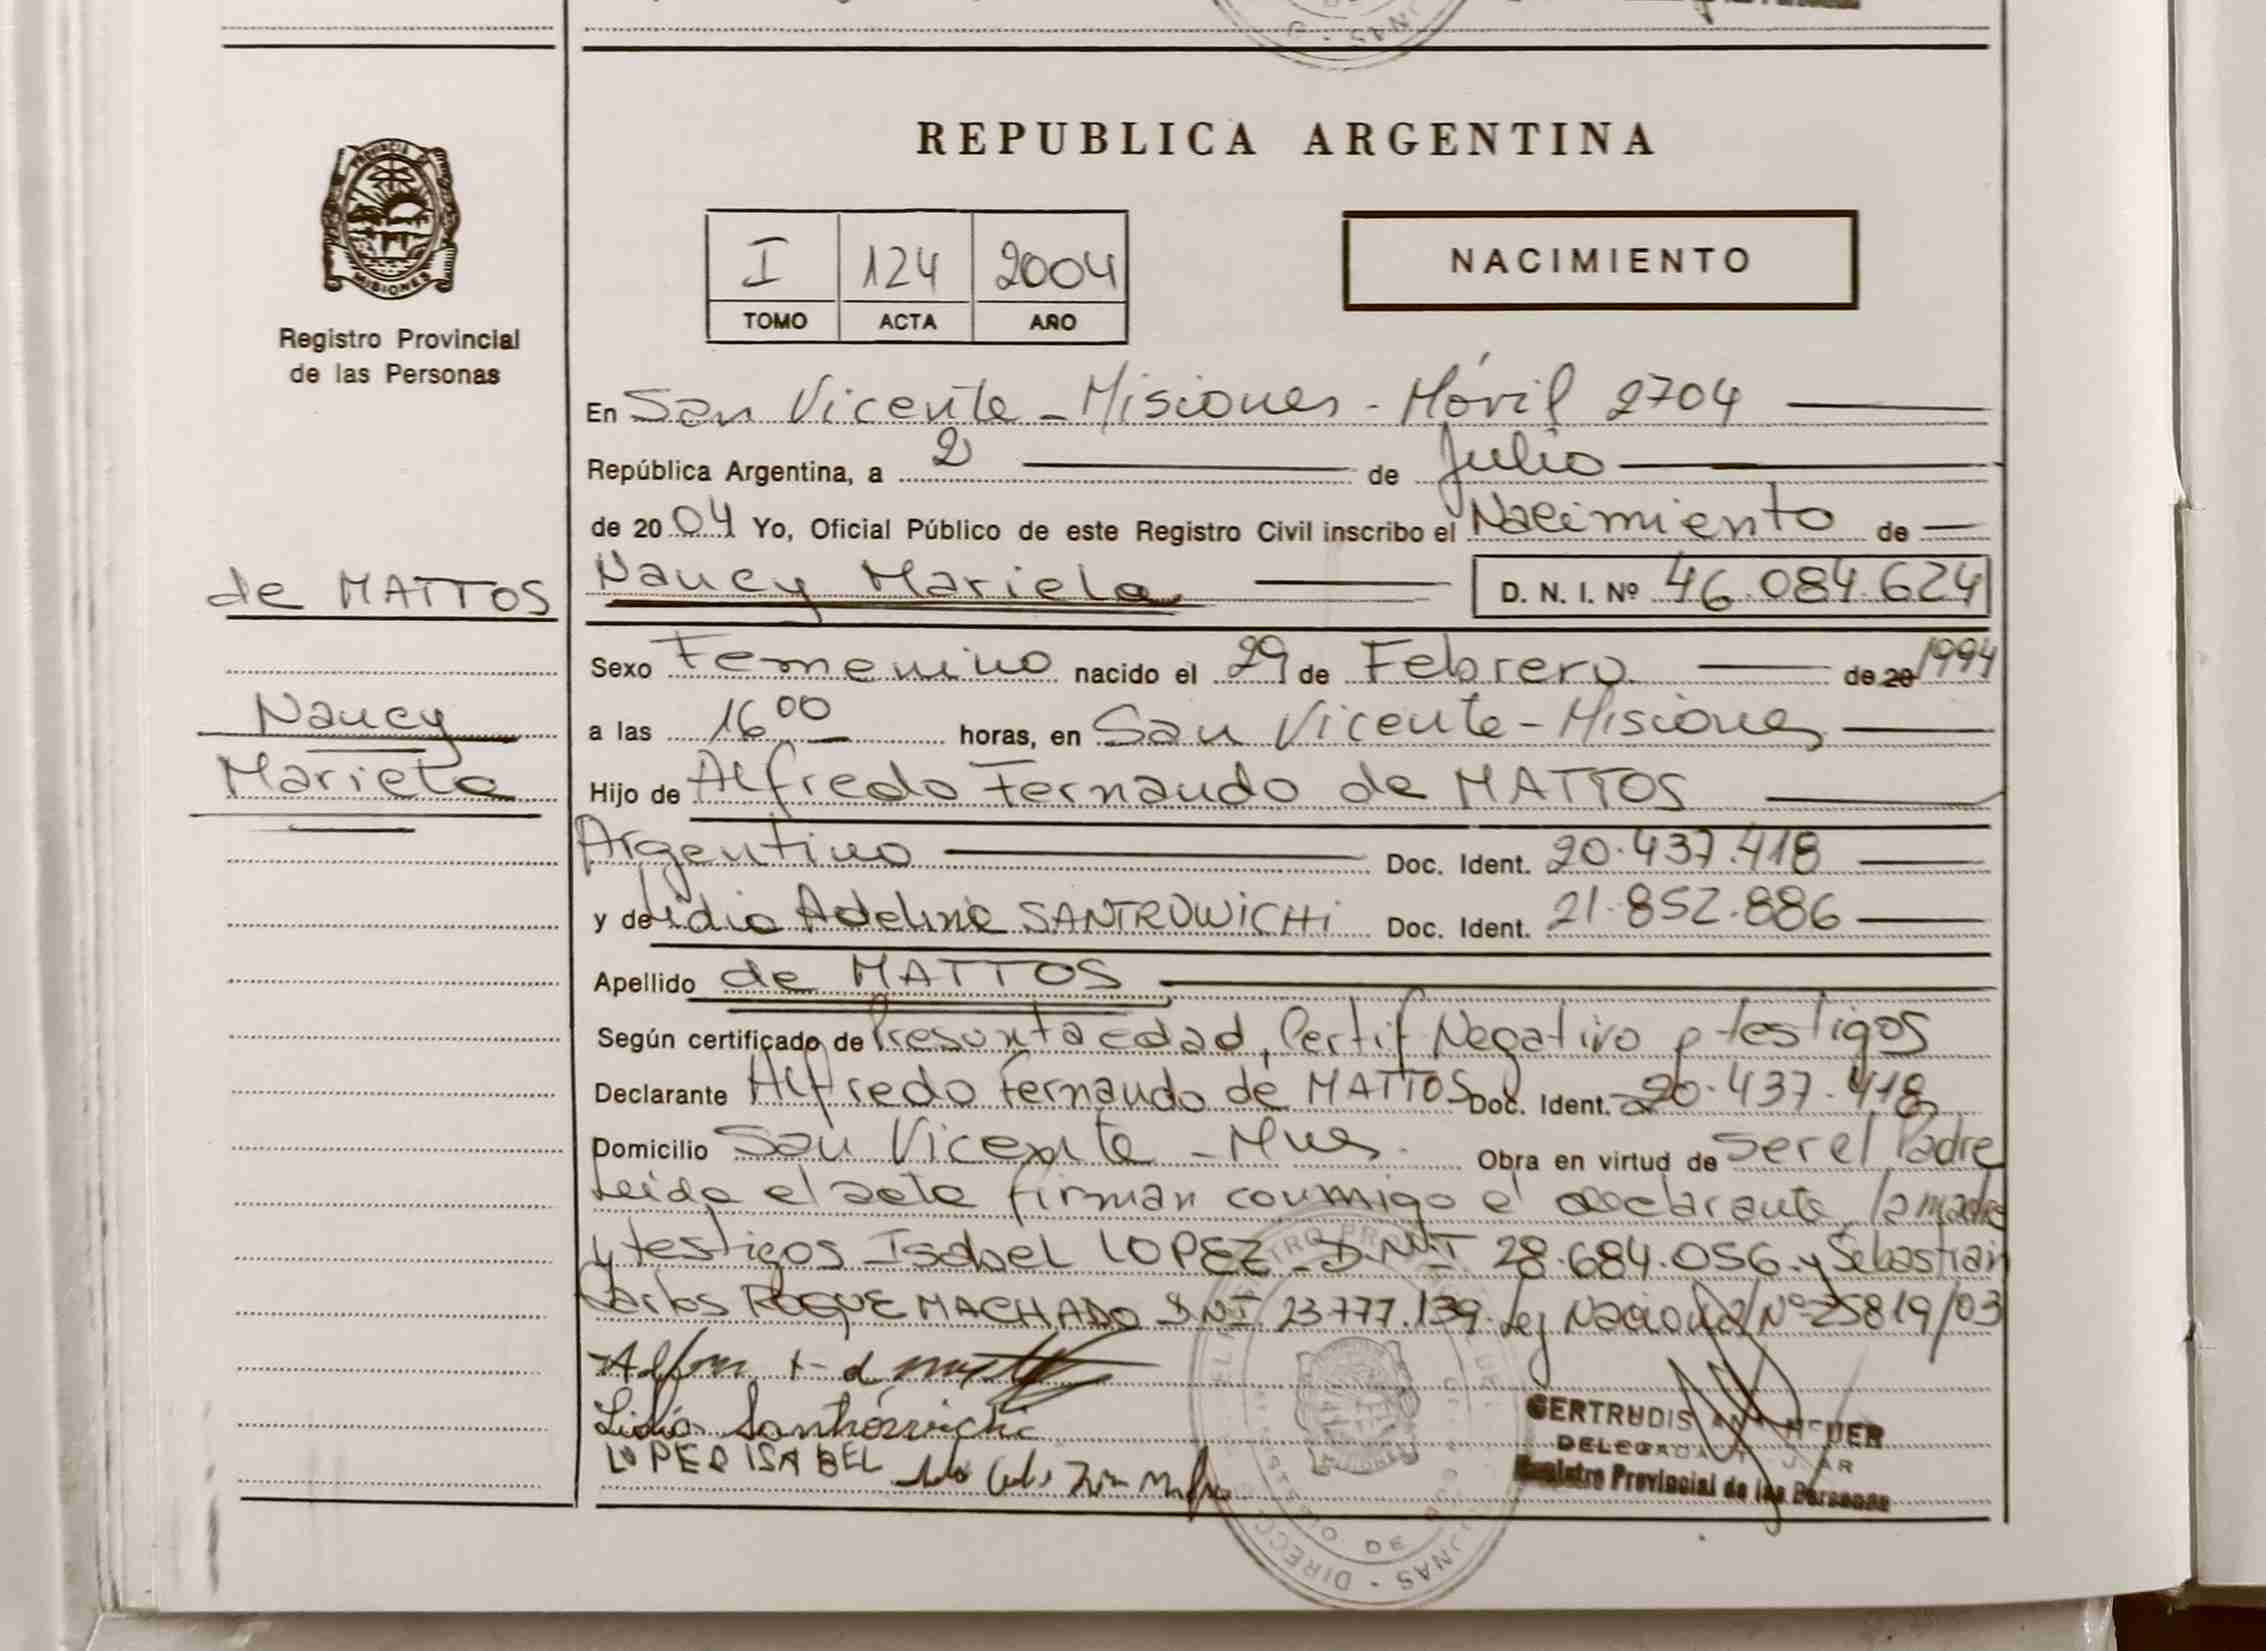 REPUBLICA ARGENTINA
PROVINCIA DE
MISIONES
Registro Provincial
de las Personas
I 124 2004
TOMO ACTA AÑO
NACIMIENTO
En San Vicente - Misiones - Móvil 2704
República Argentina, a 2 de Julio
de 2004 Yo, Oficial Público de este Registro Civil inscribo el Nacimiento de
de MATTOS
Nancy Mariela D. N. I. Nº 46.084.624
Sexo Femenino nacido el 29 de Febrero de 20 1994
Nancy
a las 16 00 horas, en San Vicente - Misiones
Mariela
Hijo de Alfredo Fernando de MATTOS
Argentino Doc. Ident. 20.437.418
y de Lidia Adelina SANTROWICHI Doc. Ident. 21.852.886
Apellido de MATTOS
Según certificado de Presunta edad, Certif Negativo y testigos
Declarante Alfredo Fernando de MATTOS Doc. Ident. 20.437.418
Domicilio San Vicente - Mnes. Obra en virtud de ser el Padre
Leida el acta firman conmigo el declarante, la madre
y testigos Isabel LOPEZ - D.N.I 28.684.056 y Sebastian
Carlos ROQUE MACHADO D.N.I. 23.777.139. Ley Nacional Nº 25819/03
Lidia Santrowichi
LOPEZ ISABEL
GERTRUDIS
DELEGADA
Registro Provincial de las Personas